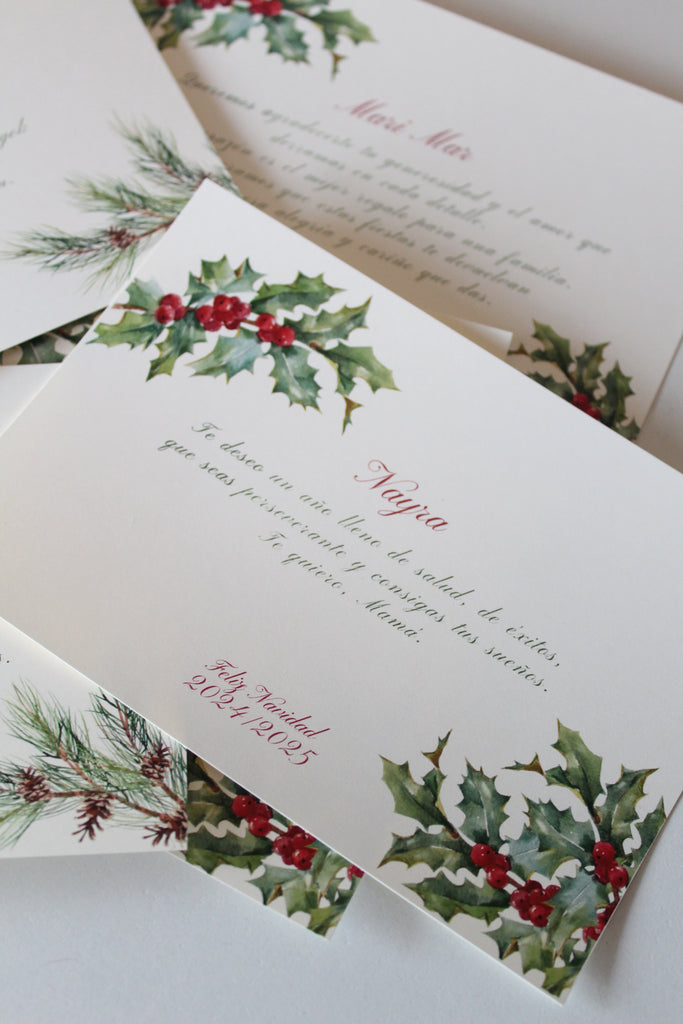 Mari Mar
Queremos agradecerte tu generosidad y el amor que
derramas en cada detalle.
es el mejor regalo para una familia.
que estas fiestas te devuelvan
alegría y cariño que das.
Nayra
Te deseo un año lleno de salud, de éxitos,
que seas perseverante y consigas tus sueños.
Te quiero, Mamá.
Feliz Navidad
2024/2025